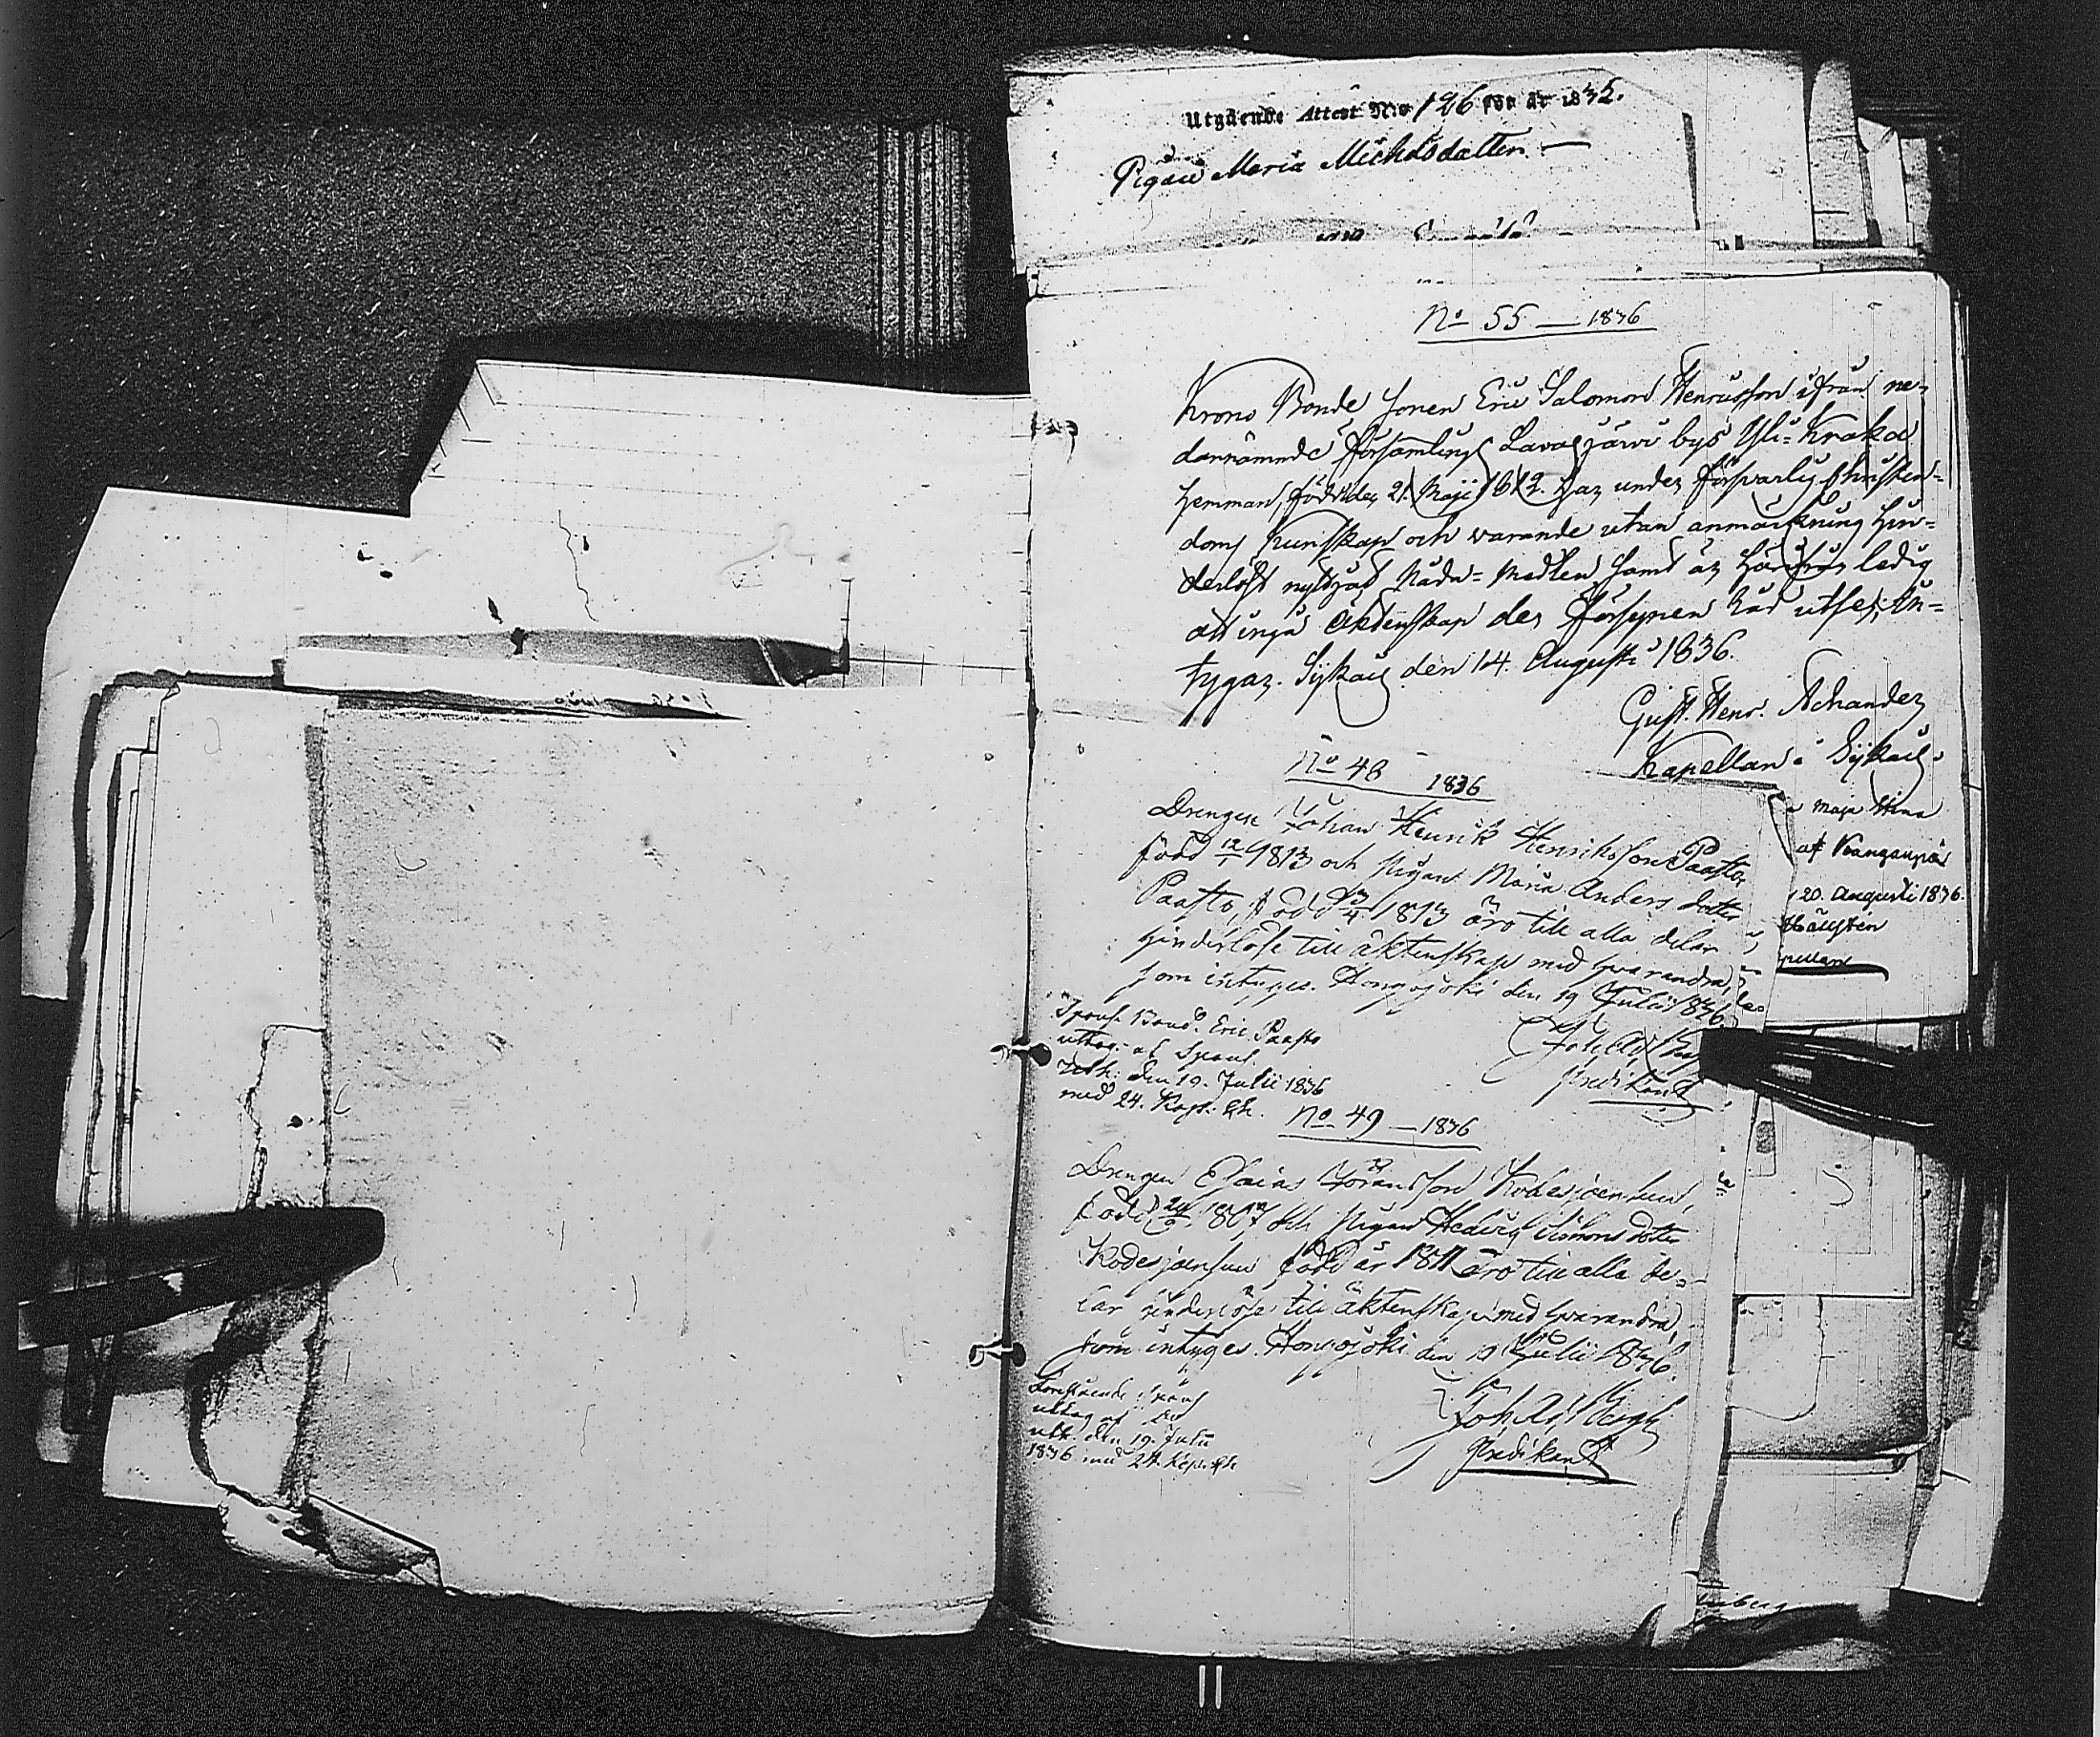 Utgående Attest No 126 för år 1835.
Pigan Maria Michelsdotter. —
No 55 — 1836
Krono Bonde Sonen Eric Salomon Henricsson ifrån ne-
dannämnde församling Lavajärvi bys Yli-Kraka
hemman, född den 21. Maji 1812. har under försvarlig christen-
doms kunskap och varande utan anmärkning hin-
derlöst nyttjat Nåda-Medlen samt är härifrån ledig
att ingå äktenskap der försynen håd utser; in-
tygar. Sykais den 14. Augusti 1836.
Gust. Henr. Achander
Kapellan i Sykais.
Maja Stina
af Kangasniä
20. Augusti 1836.
Hällstén
pellan
No 48 1836
Drengen Johan Henrik Henriksson Paasto,
född 12/1 1813 och Pigan Maria Anders dotter
Paasto, född 3/4 1813 äro till alla delar
hinderlöse till äktenskap med hvarandra,
som intyges. Honojoki den 19 Julii 1836.
Joh. Adf.
Predikant
Spons. Bond. Eric Paasto
uttog af Spons.
Utk. den 19. Julii 1836
med 24. Kop.
No 49 — 1836
Drengen Esaias Göransson Kodesjoensuu,
född 24/2 1807 och Pigan Hedvig Simons dotter
Kodesjoensuu född år 1811 äro till alla de-
lar hinderlöse till äktenskap med hvarandra,
som intyges. Honojoki den 19 Julii 1836.
Joh. Adf. Bergh
Predikant
Förestående Spons
uttag af
utk. den 19. Julii
1836 med 24. Kop.